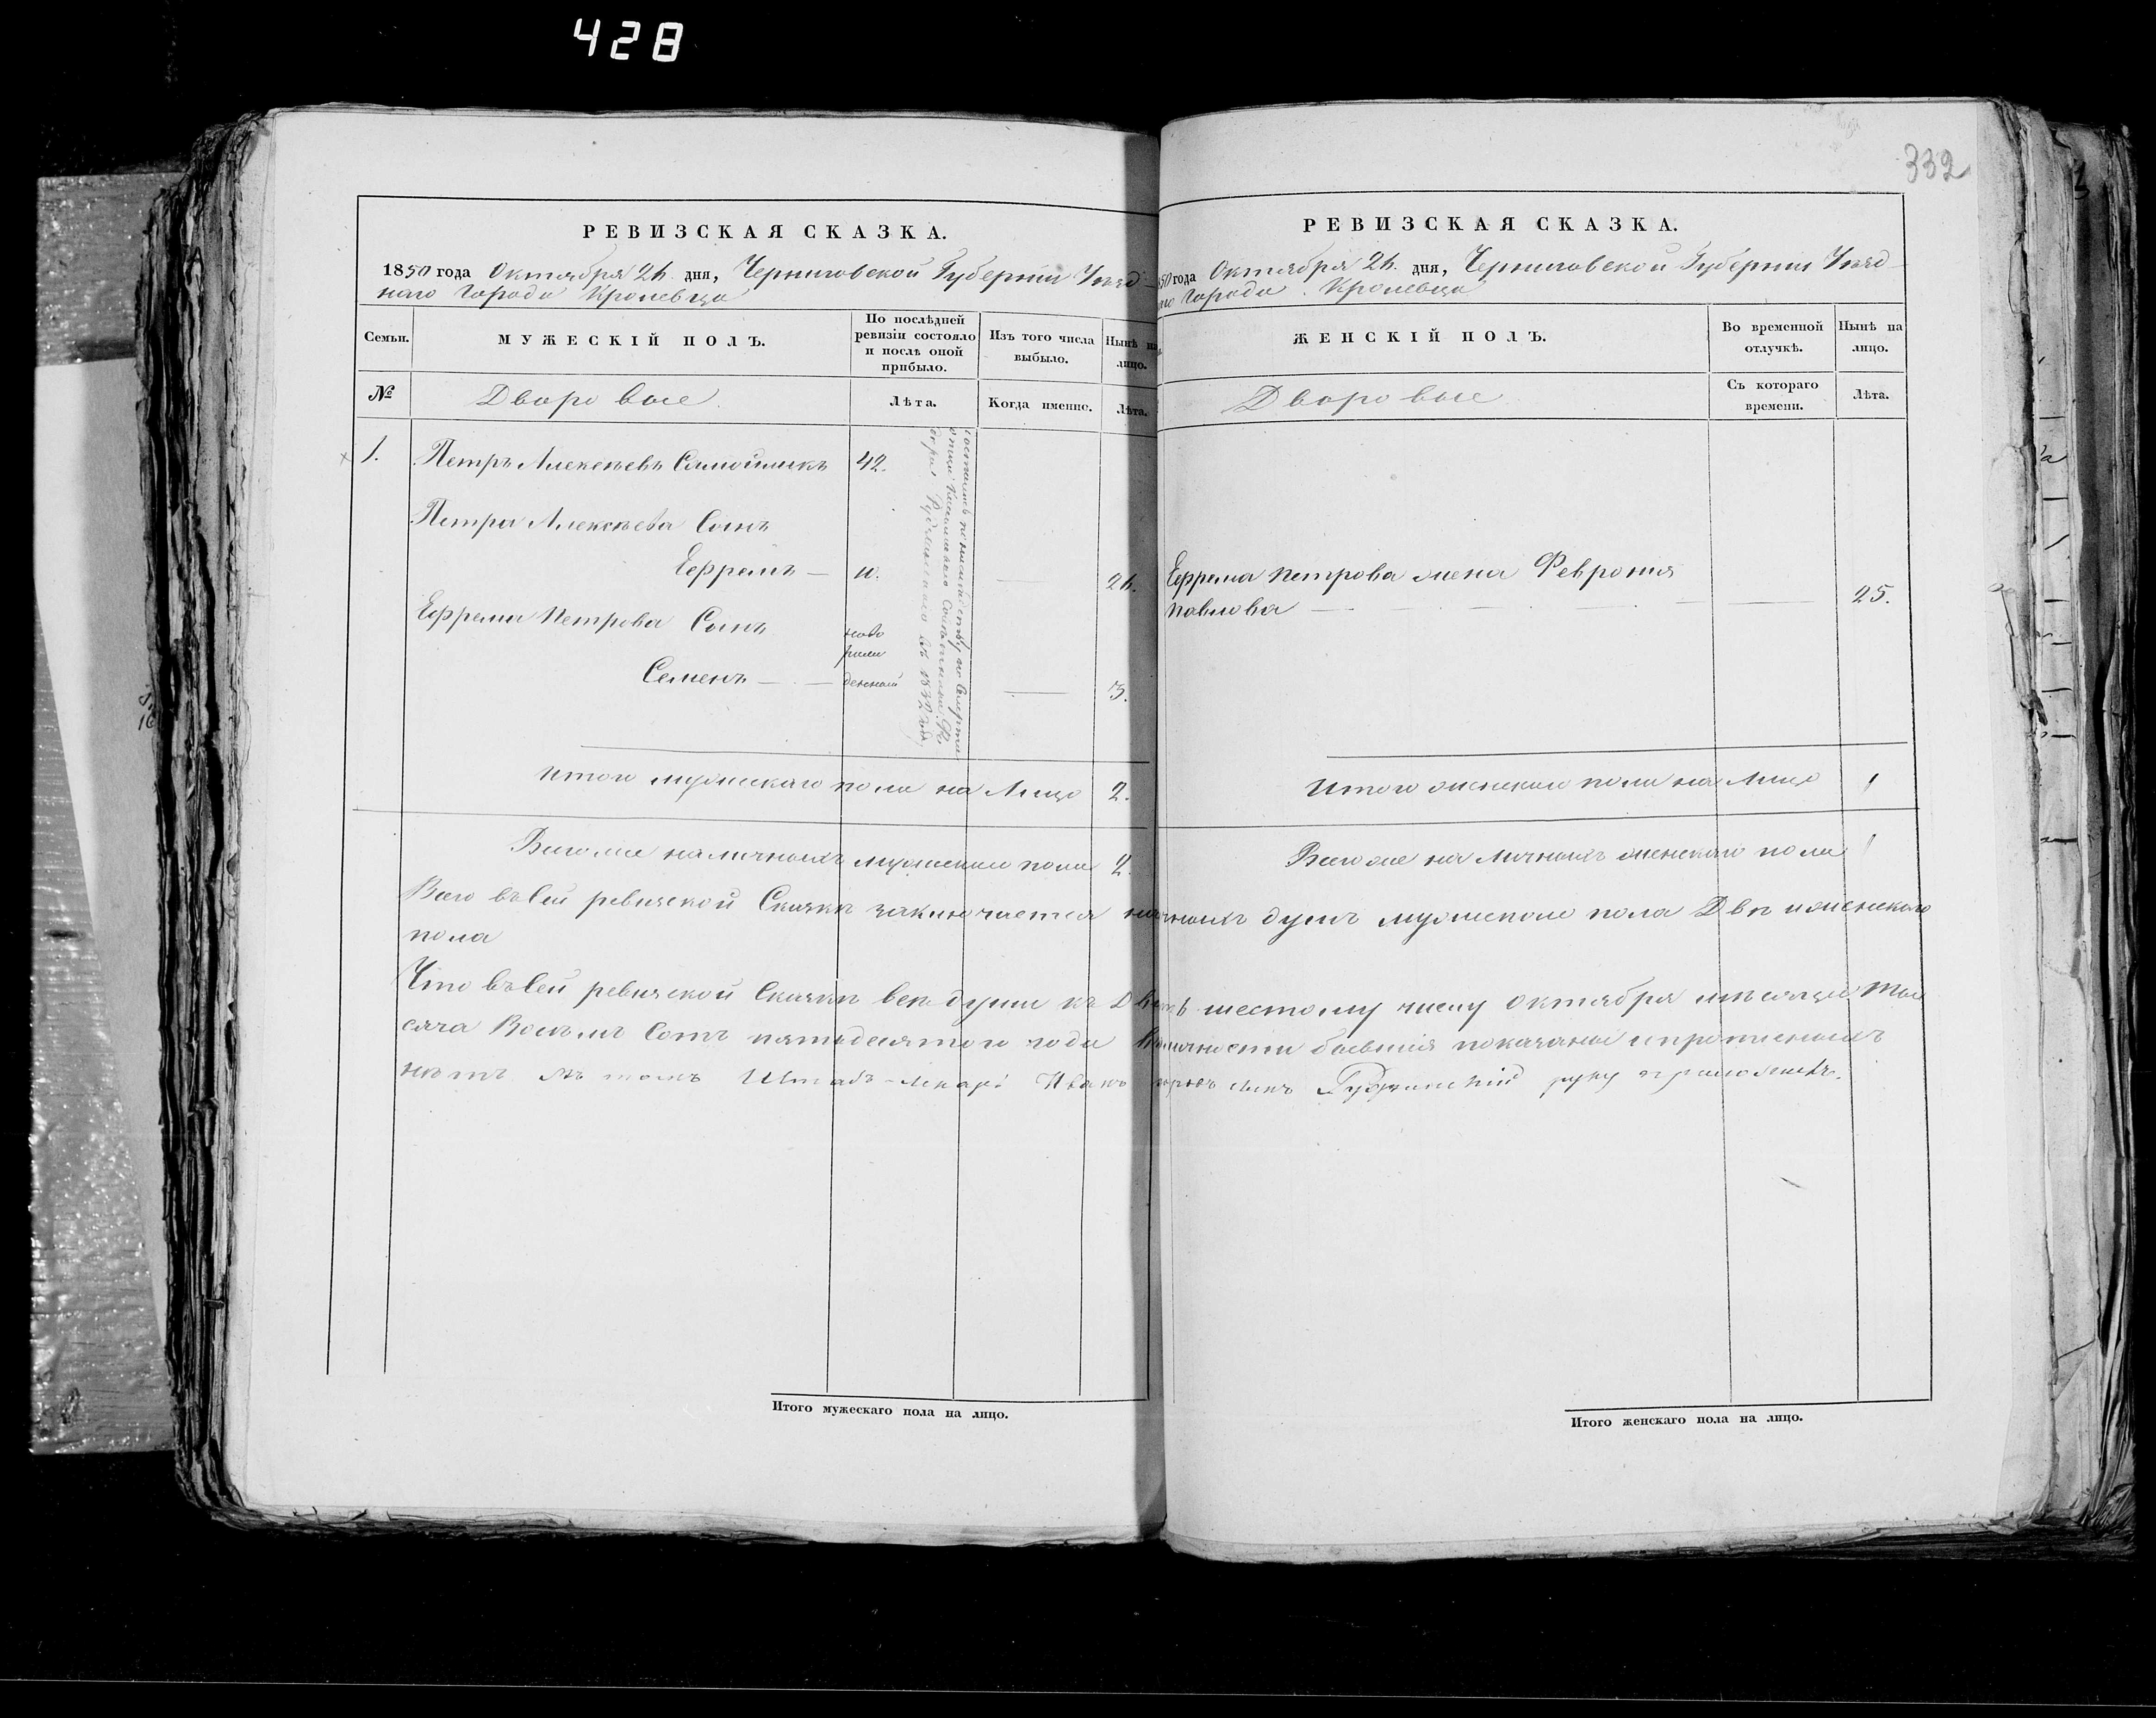 428
332
РЕВИЗСКАЯ СКАЗКА.
1850 года Октября 26. дня, Черниговской Губернии Уѣзд-
наго Города Кролевца
Семьи.
МУЖЕСКІЙ ПОЛЪ.
По послѣдней ревизіи состояло и послѣ оной прибыло.
Изъ того числа выбыло.
Нынѣ на лицо.
№
Дворовые
Лѣта.
Когда именно.
Лѣта.
1.
Петръ Алексѣевъ 42.
Петра Алексѣева Сынъ
Ефремъ — 11. — 26.
Ефрема Петрова Сынъ
Семенъ — — ново
рож
денный — 3.
въ 1832 году
Итого мужескаго пола на Лицо 2.
Всего же наличныхъ мужескаго пола 2.
РЕВИЗСКАЯ СКАЗКА.
1850 года Октября 26. дня, Черниговской Губернии Уѣзд-
наго Города Кролевца
ЖЕНСКІЙ ПОЛЪ.
Во временной отлучкѣ.
Нынѣ на лицо.
Дворовые
Съ котораго времени.
Лѣта.
Ефрема Петрова жена Феврония
Павлова — — — — — 25.
Итого женскаго пола на Лицо 1
Всего же на Личныхъ женскаго пола 1
Всего въ Сей ревизской Сказкѣ заключается наличныхъ душъ мужескаго пола Двѣ и женскаго
пола
Что въ Сей ревизской Сказкѣ всѣ души къ Двадцать шестому числу Октября мѣсяца Тыс
сяча Восемь Сотъ пятьдесятого года въ наличности бывшія показаны и прописныхъ
нѣтъ въ томъ Штабъ-Лекарь Иванъ сынъ руку приложилъ.
Итого мужескаго пола на лицо.
Итого женскаго пола на лицо.